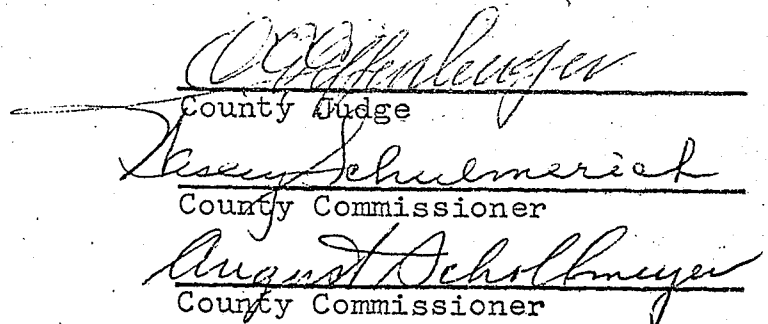 County Judge
Schulmerich
County Commissioner
August Schollmeyer
County Commissioner